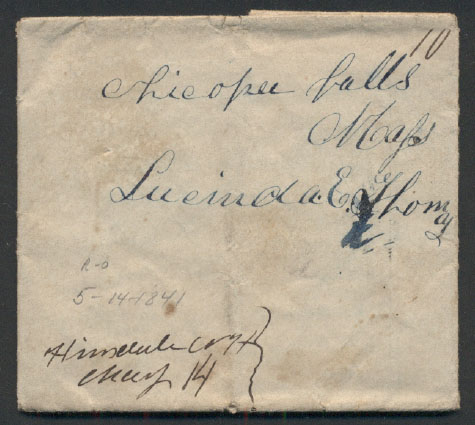 10
Chicopee falls
Mass
Lucinda E. Thomas
R-O
5-14-1841
Hinsdale
May 14